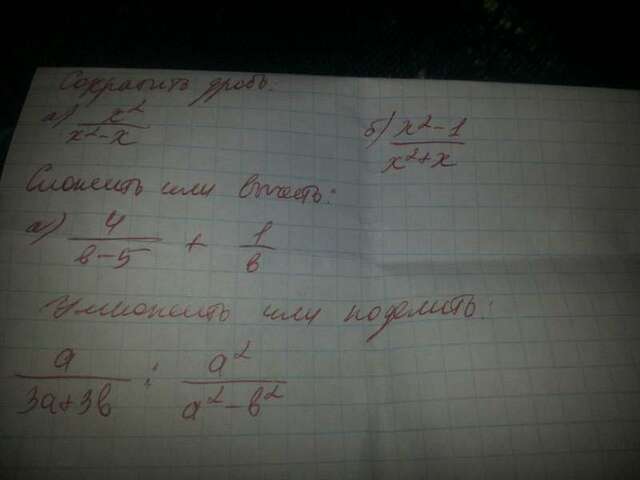 Сократить дробь:
а) x²/(x²-x) б) (x²-1)/(x²+x)
Сложить или вычесть:
а) 4/(в-5) + 1/в
Умножить или поделить:
a/(3a+3в) : a²/(a²-в²)